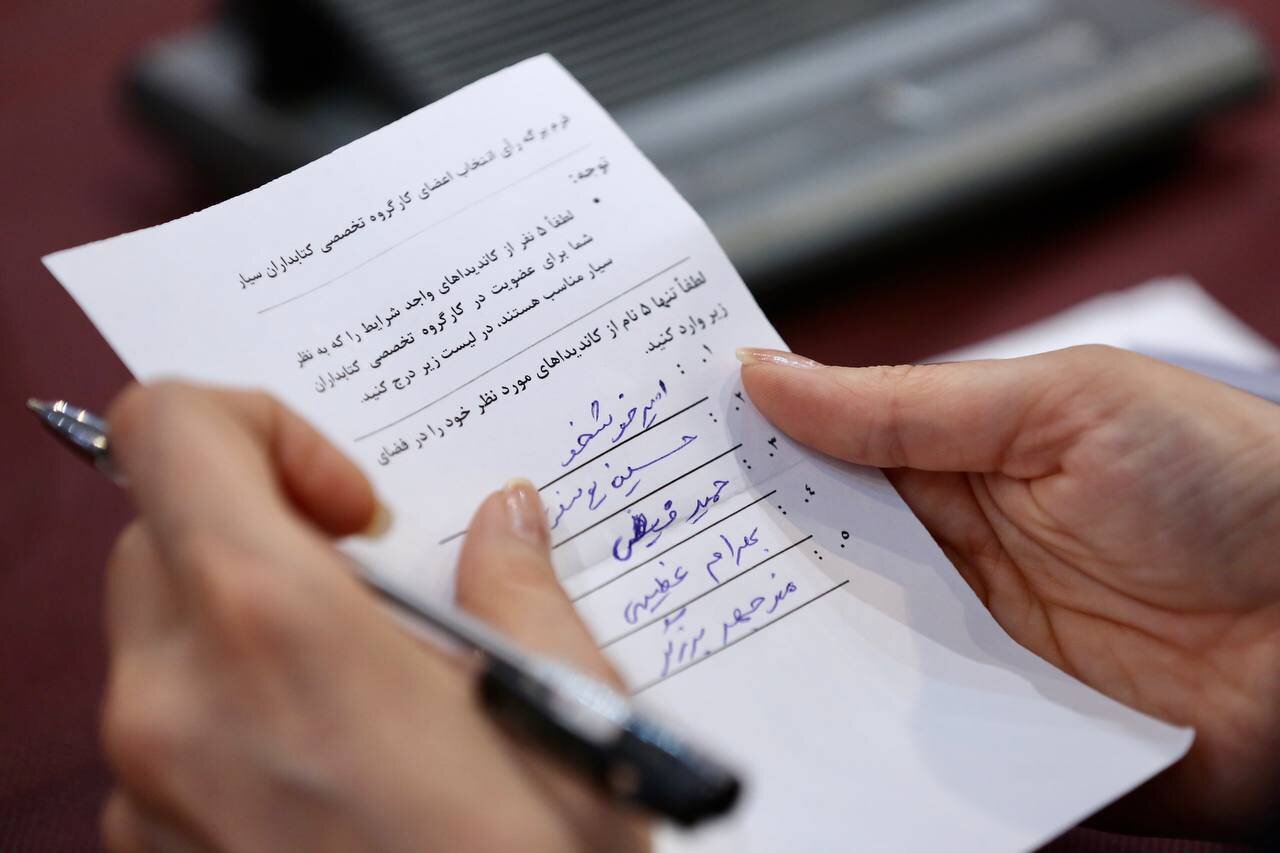 فرم برگه رأی انتخاب اعضای کارگروه تخصصی کتابداران سیار
توجه:
• لطفاً ۵ نفر از کاندیداهای واجد شرایط را که به نظر
شما برای عضویت در کارگروه تخصصی کتابداران
سیار مناسب هستند، در لیست زیر درج کنید.
لطفاً تنها ۵ نام از کاندیداهای مورد نظر خود را در فضای
زیر وارد کنید.
۱. : امیر
۲. : حسین
۳. : حمید
۴. : بهرام
۵. : منوچهر